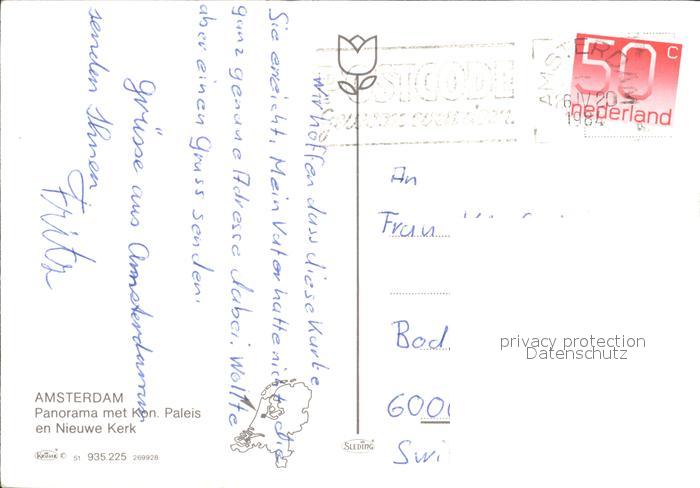 Wir hoffen dass diese Karte
Sie erreicht. Mein Vater hatte nicht die
ganz genaue Adresse dabei. Wollte
aber einen Gruss senden.
Grüsse aus Amsterdam
senden Ihnen
Fritz
AMSTERDAM
Panorama met Kon. Paleis
en Nieuwe Kerk
KRÜGER © 51 935.225 269928
SLEDING
POSTCODE
AMSTERDAM
16 IV 20
1984
50 c
nederland
An
Frau
Bad
600
Swi
privacy protection
Datenschutz